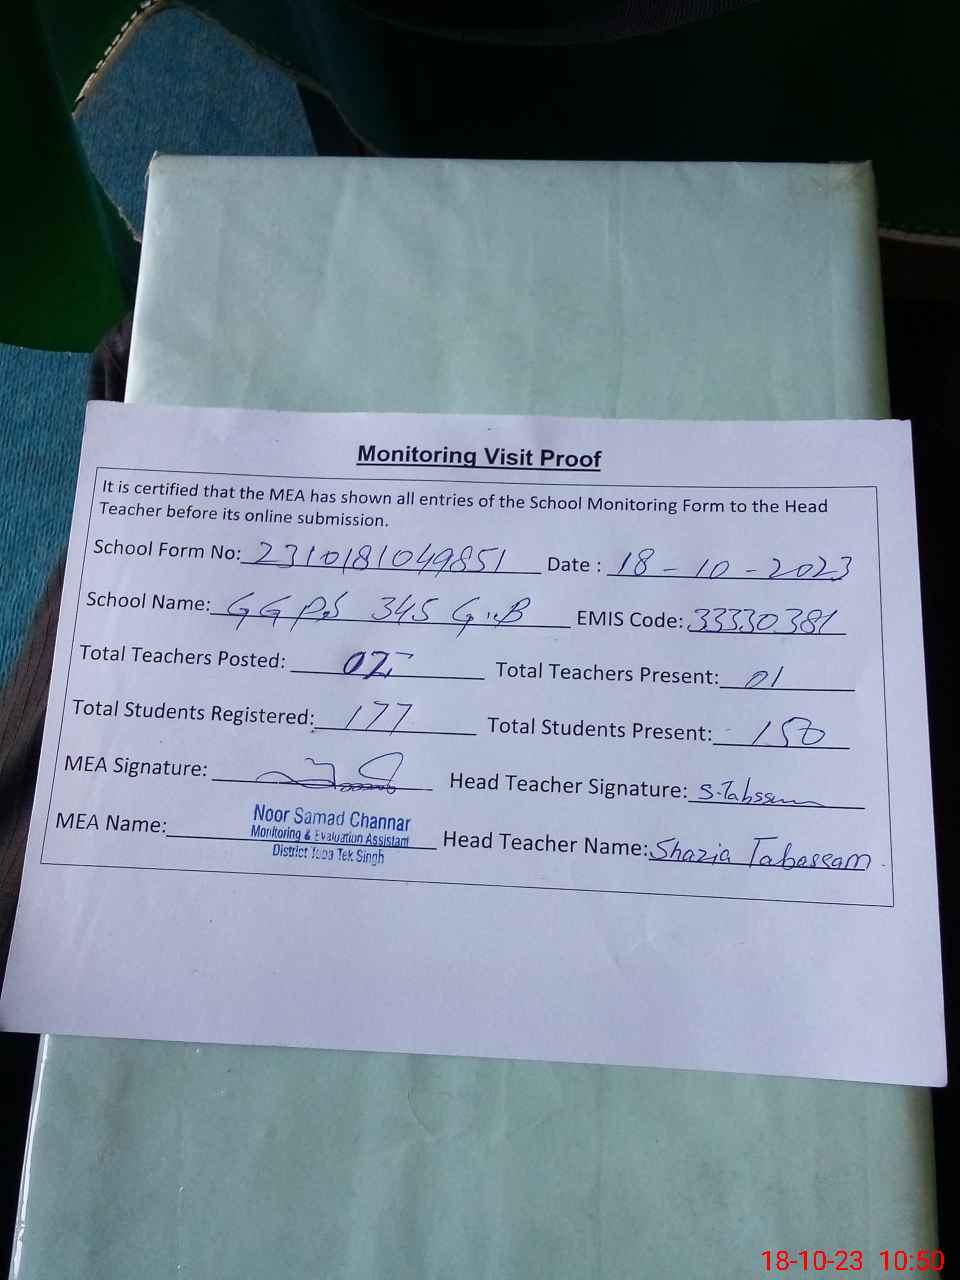 Monitoring Visit Proof
It is certified that the MEA has shown all entries of the School Monitoring Form to the Head
Teacher before its online submission.
School Form No: 2310181049851 Date : 18-10-2023
School Name: GGPS 345 G.B EMIS Code: 33330381
Total Teachers Posted: 02 Total Teachers Present: 01
Total Students Registered: 177 Total Students Present: 150
MEA Signature: Head Teacher Signature: S.Tabssum
MEA Name: Noor Samad Channar
Monitoring & Evaluation Assistant
District Toba Tek Singh
Head Teacher Name: Shazia Tabassam
18-10-23 10:50